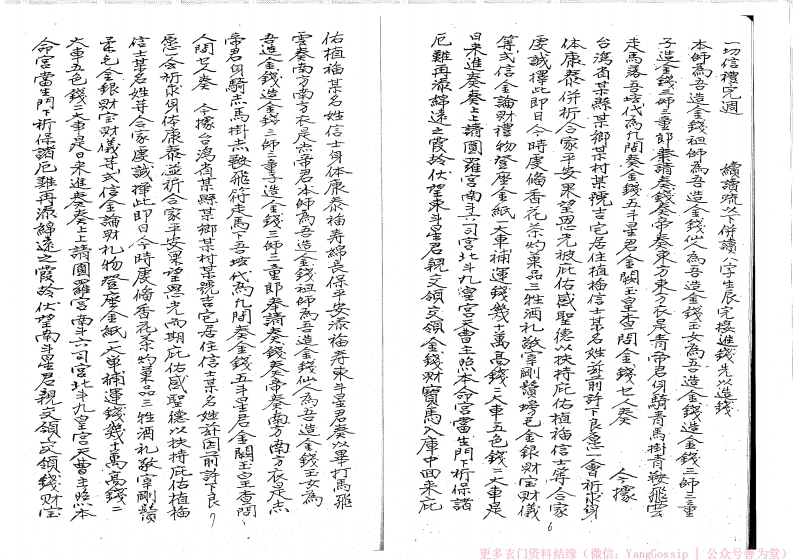 一切信禮完週　　續讀疏以下併讀八字生辰完接進錢先以造錢
本師為吾造金錢祖師為吾造金錢仙人為吾造金錢玉女為吾造金錢造金錢三師三童
子造金錢三師三童郎奉請奏錢奏帝奏東方東方衣是青帝君身騎青馬掛青鞍飛雲
走馬落吾坛代為九閑奏金錢五斗星君金闕玉皇查閱金錢七人奏　今據
台灣省某縣某鄉某村某號吉宅居住植福信士某名姓莊前許下良愿一會祈求身
体康泰併祈合家平安果望恩光被庇佑感聖德以扶持庇佑植福信士等合家
虔誠擇此即日今時虔備香花茶灼菓品三牲酒礼敬宰剛鬣毛金銀財宝財儀
等式信金論財禮物登座金紙一大車補運錢幾十萬高錢二大車五色錢二大車是
日來進奏奏上上請園羅宮南斗六司宮北斗九皇宮天曹主照本命宮當生門下祈保諸
厄難再添綿遠之霞於伏望東斗星君親交領交領金錢財寶馬入庫中回來庇
6
佑植福某名姓信士身体康泰福寿綿長保平安添福寿東斗星君奏以畢打馬飛
雲奏南方南方衣是赤帝君本師為吾造金錢祖師為吾造金錢仙人為吾造金錢玉女為
吾造金錢造金錢三師三童子造金錢三師三童郎奉請奏錢奏帝奏南方南方衣是赤
帝君身騎赤馬掛赤鞍飛行走馬下吾坛代為九閑奏金錢五斗星君金闕玉皇查閱
人閱七人奏　今據台灣省某縣某鄉某村某號吉宅居住信士某名姓莊因前許下良
愿一会祈求身体康泰並祈合家平安果望恩光而期庇佑感聖德以扶持庇佑植福
信士某名姓等合家虔誠擇此即日今時虔備香花茶灼菓品三牲酒礼敬宰剛鬣
柔毛金銀財宝財儀等式信金論財礼物登座金紙一大車補運錢幾十萬高錢二
大車五色錢二大車是日來進奏奏上上請園羅宮南斗六司宮北斗九皇宮天曹主照本
命宮當生門下祈保諸厄難再添綿遠之霞於伏望南斗星君親交領交領錢財宝
更多玄门资料结缘（微信：YangGossip | 公众号善为堂）